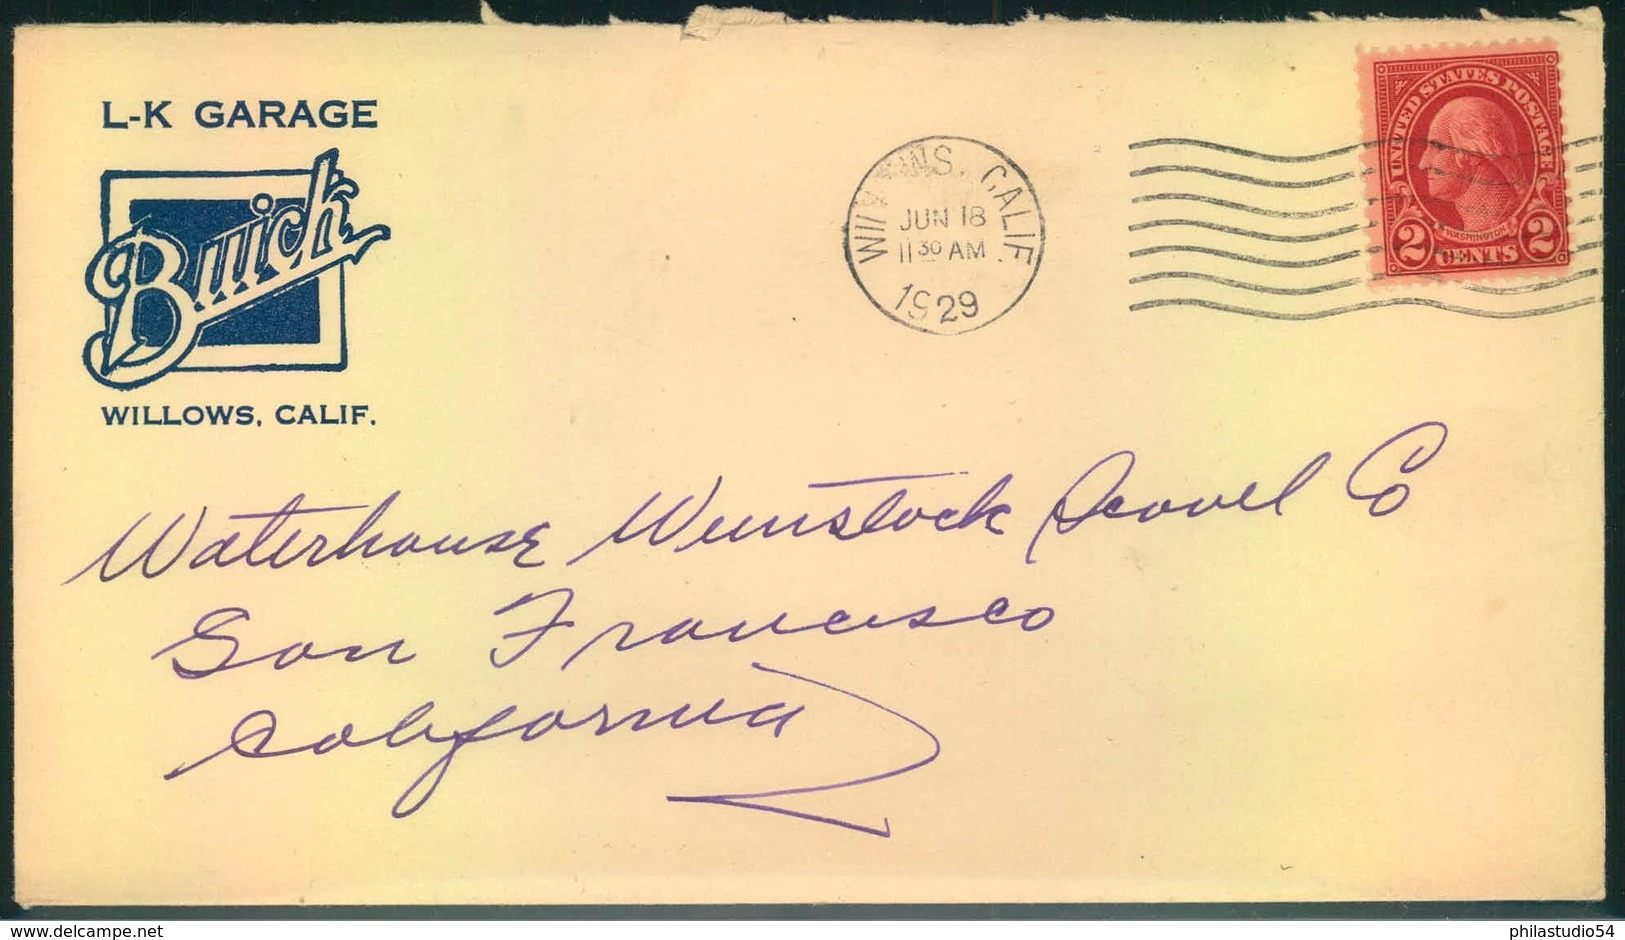 L-K GARAGE
Buick
WILLOWS, CALIF.
WILLOWS. CALIF.
JUN 18
11 30 AM
1929
UNITED STATES POSTAGE
WASHINGTON
2 CENTS 2
Waterhouse Weinstock Scovel Co
San Francisco
California
delcampe.net
philastudio54